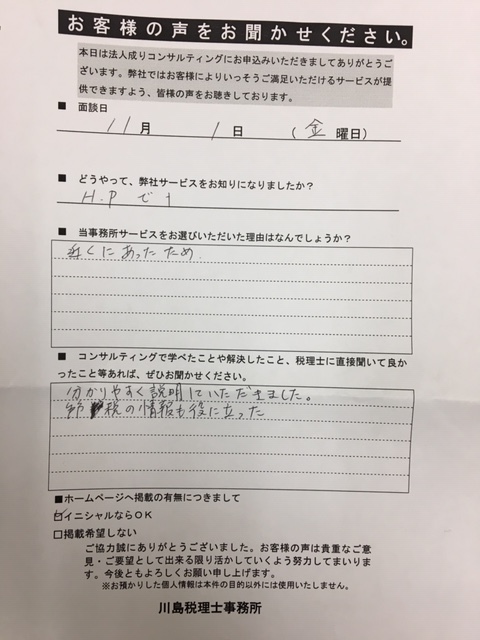 お客様の声をお聞かせください。
本日は法人成りコンサルティングにお申込みいただきましてありがとうご
ざいます。弊社ではお客様によりいっそうご満足いただけるサービスが提
供できますよう、皆様の声をお聴きしております。
■ 面談日
11月 1日 (金 曜日)
■ どうやって、弊社サービスをお知りになりましたか?
H.Pで
■ 当事務所サービスをお選びいただいた理由はなんでしょうか?
近くにあったため
■ コンサルティングで学べたことや解決したこと、税理士に直接聞いて良か
ったこと等あれば、ぜひお聞かせください。
分かりやすく説明していただきました。
節税の情報も役に立った
■ホームページへ掲載の有無につきまして
☑イニシャルならOK
□掲載希望しない
ご協力誠にありがとうございました。お客様の声は貴重なご意
見・ご要望として出来る限り活かしていくよう努力してまいりま
す。今後ともよろしくお願い申し上げます。
※お預かりした個人情報は本件の目的以外には使用いたしません。
川島税理士事務所